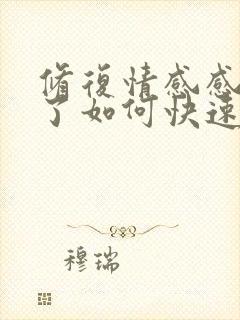 修復情感感
了如何快速
穆瑞